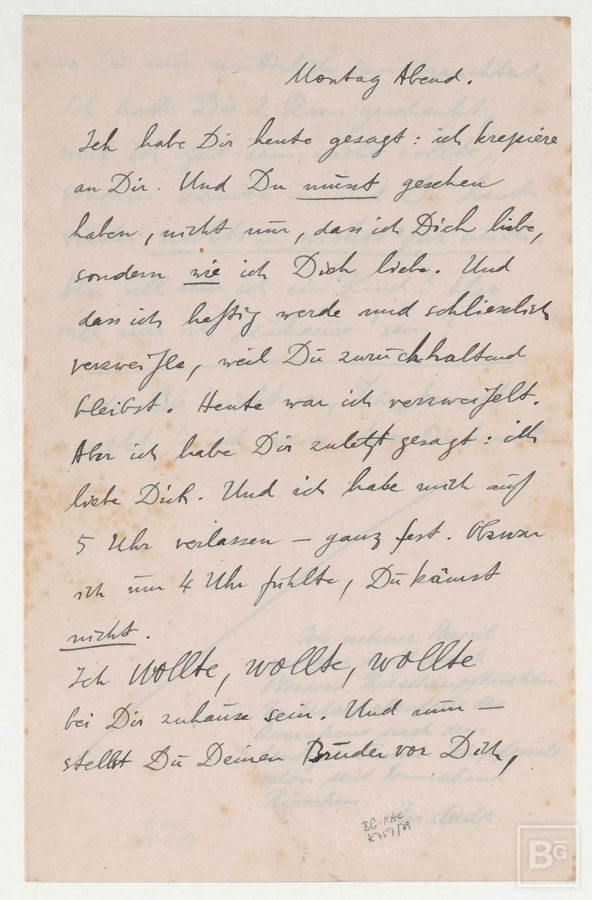 Montag Abend.
Ich habe Dir heute gesagt: ich krepiere
an Dir. Und Du musst gesehen
haben, nicht nur, dass ich Dich liebe,
sondern wie ich Dich liebe. Und
dass ich heftig werde und schliesslich
verzweifle, weil Du zurückhaltend
bleibst. Heute war ich verzweifelt.
Aber ich habe Dir zuletzt gesagt: ich
liebe Dich. Und ich habe mich auf
5 Uhr verlassen – ganz fest. Obzwar
ich um 4 Uhr fühlte, Du kämst
nicht.
Ich wollte, wollte, wollte
bei Dir zuhause sein. Und nun –
stellst Du Deinen Bruder vor Dich,
BG-HHC
K757/79
BG